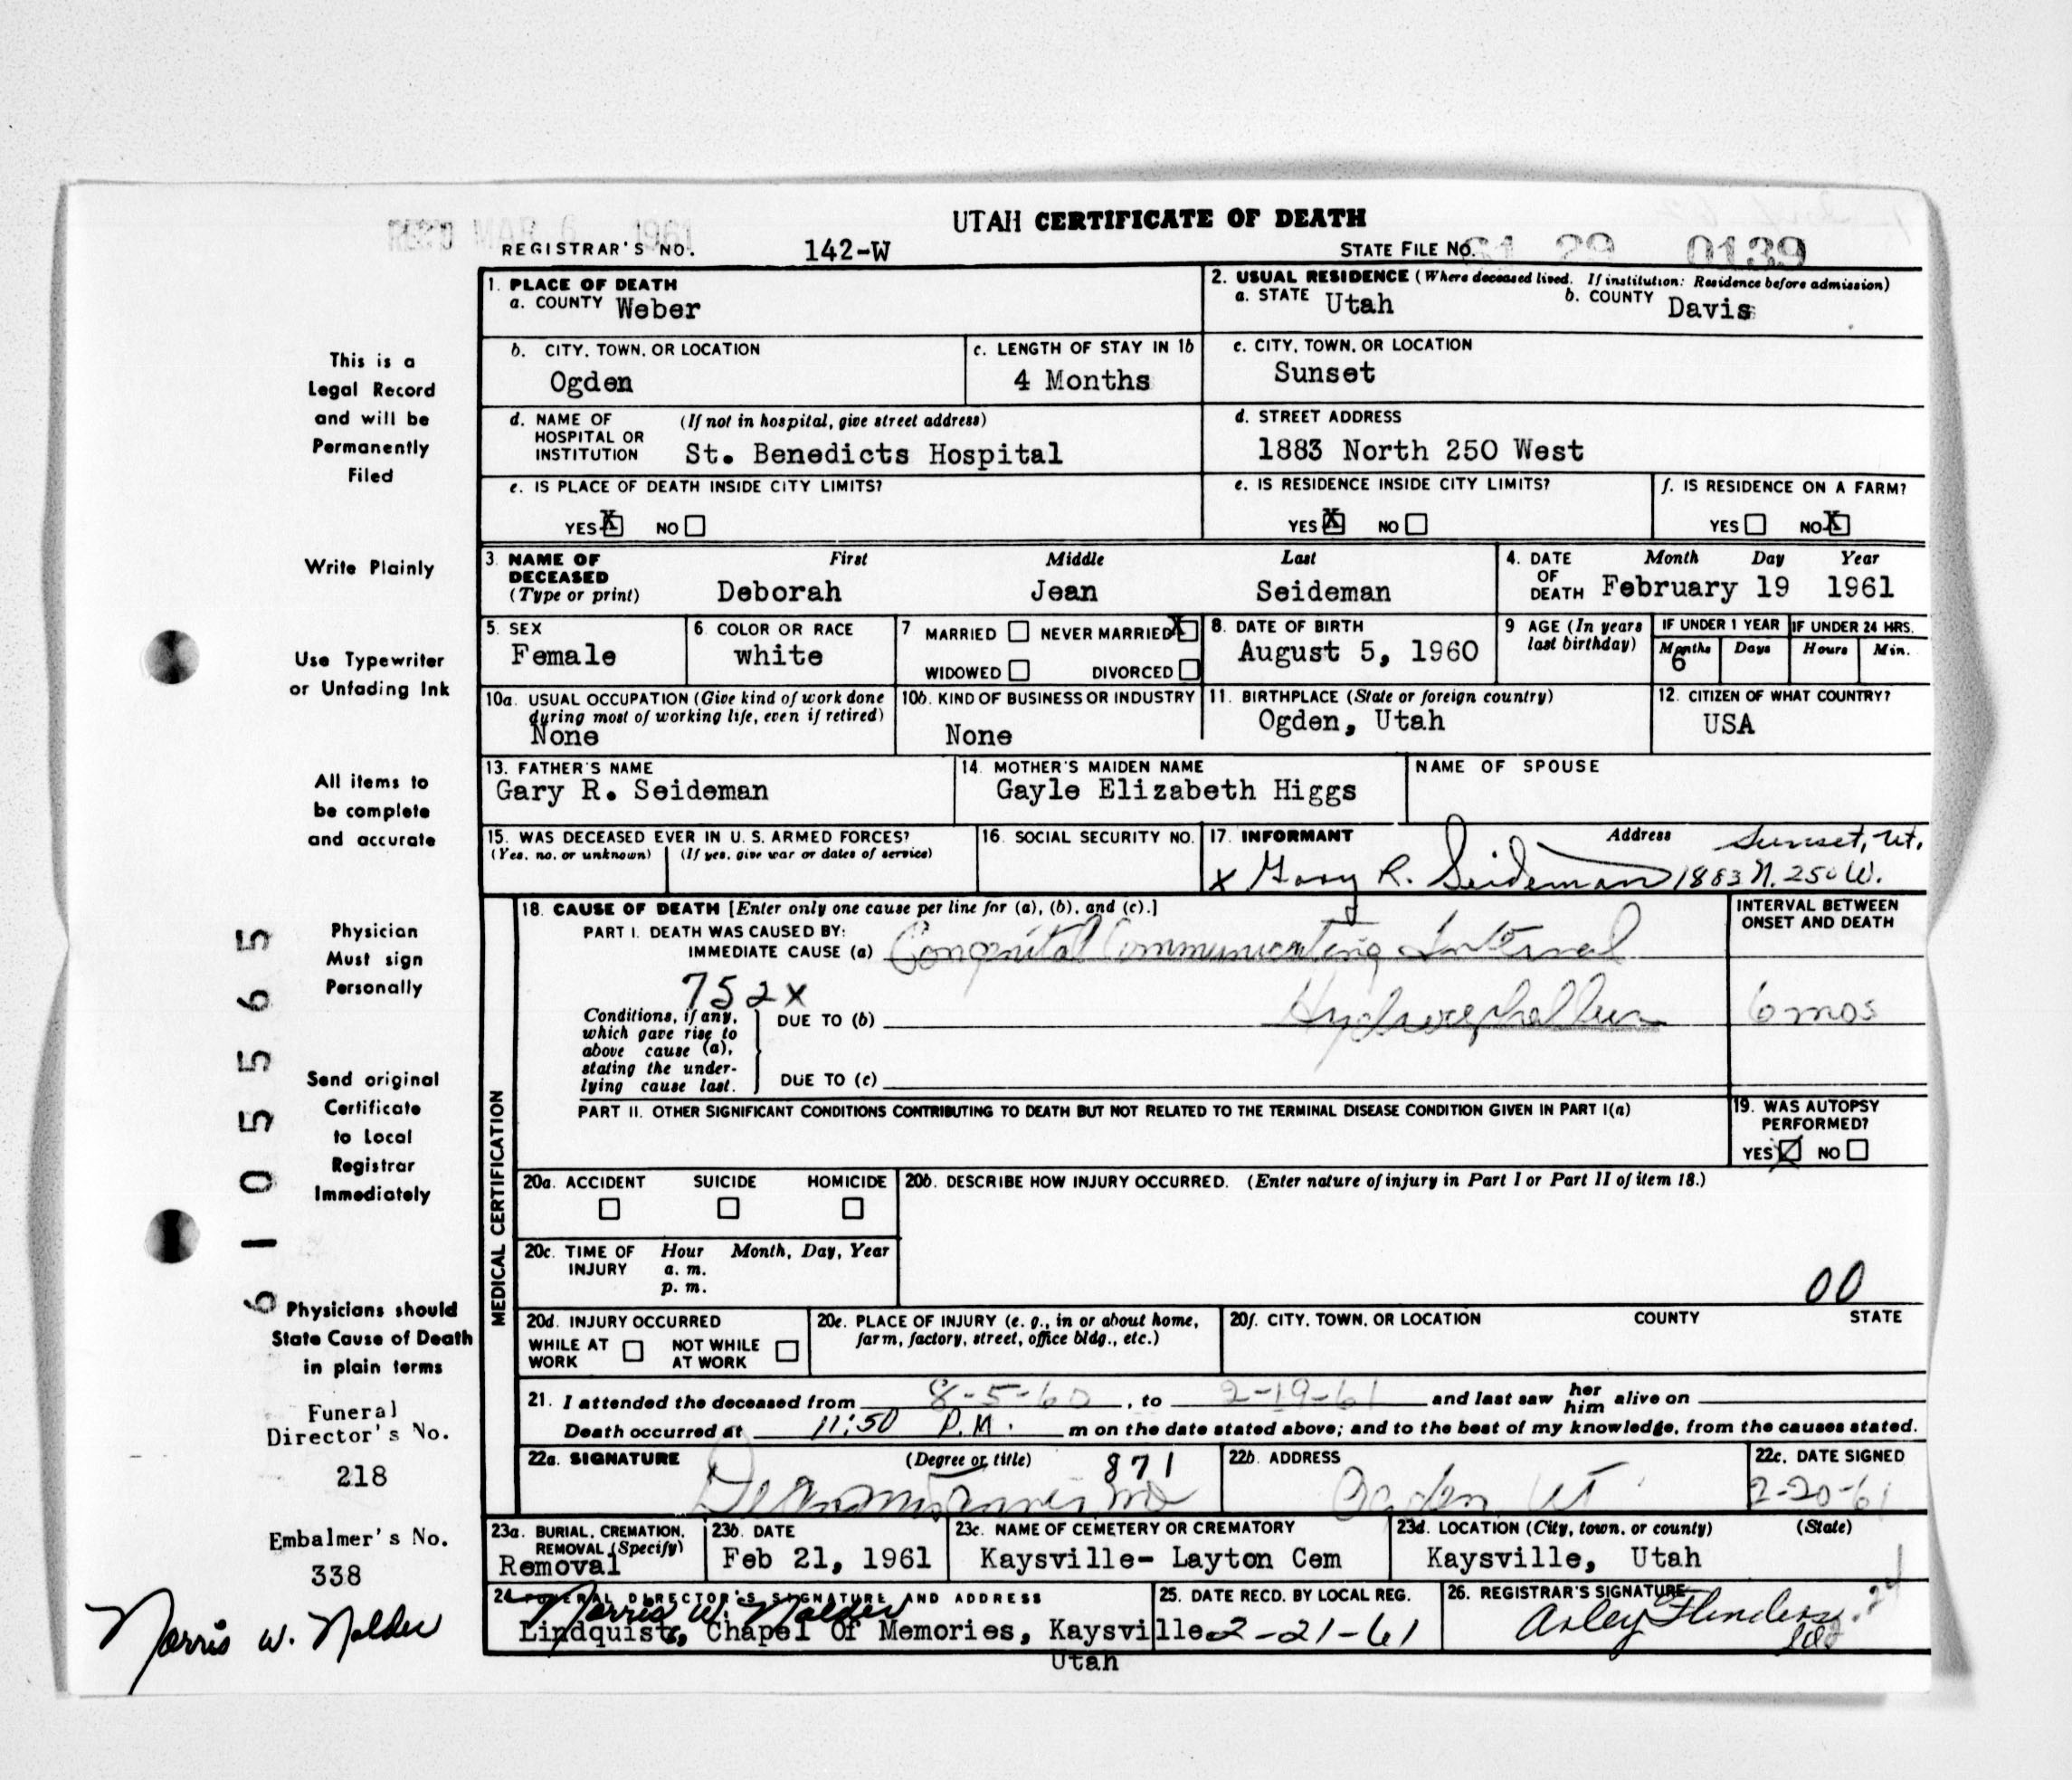 UTAH CERTIFICATE OF DEATH
REC'D MAR 1961
REGISTRAR'S NO. 142-W STATE FILE NO. 61 29 0139
1. PLACE OF DEATH
a. COUNTY Weber
2. USUAL RESIDENCE (Where deceased lived. If institution: Residence before admission)
a. STATE Utah b. COUNTY Davis
b. CITY, TOWN, OR LOCATION
Ogden
c. LENGTH OF STAY IN 1b
4 Months
c. CITY, TOWN, OR LOCATION
Sunset
d. NAME OF HOSPITAL OR INSTITUTION (If not in hospital, give street address)
St. Benedicts Hospital
d. STREET ADDRESS
1883 North 250 West
e. IS PLACE OF DEATH INSIDE CITY LIMITS?
YES X NO
e. IS RESIDENCE INSIDE CITY LIMITS?
YES X NO
f. IS RESIDENCE ON A FARM?
YES NO X
3. NAME OF DECEASED (Type or print) First Middle Last
Deborah Jean Seideman
4. DATE OF DEATH Month Day Year
February 19 1961
5. SEX
Female
6. COLOR OR RACE
white
7 MARRIED NEVER MARRIED X
WIDOWED DIVORCED
8. DATE OF BIRTH
August 5, 1960
9 AGE (In years last birthday)
IF UNDER 1 YEAR IF UNDER 24 HRS.
Months Days Hours Min.
6
10a. USUAL OCCUPATION (Give kind of work done during most of working life, even if retired)
None
10b. KIND OF BUSINESS OR INDUSTRY
None
11. BIRTHPLACE (State or foreign country)
Ogden, Utah
12. CITIZEN OF WHAT COUNTRY?
USA
13. FATHER'S NAME
Gary R. Seideman
14. MOTHER'S MAIDEN NAME
Gayle Elizabeth Higgs
NAME OF SPOUSE
15. WAS DECEASED EVER IN U. S. ARMED FORCES?
(Yes, no, or unknown) (If yes, give war or dates of service)
16. SOCIAL SECURITY NO.
17. INFORMANT Address Sunset, Ut.
x Gary R. Seideman 1883 N. 250 W.
MEDICAL CERTIFICATION
18. CAUSE OF DEATH [Enter only one cause per line for (a), (b), and (c).]
PART I. DEATH WAS CAUSED BY:
IMMEDIATE CAUSE (a) Congenital Communicating Internal
752x
Hydrocephallus
Conditions, if any, which gave rise to above cause (a), stating the underlying cause last.
DUE TO (b)
DUE TO (c)
INTERVAL BETWEEN ONSET AND DEATH
6 mos
PART II. OTHER SIGNIFICANT CONDITIONS CONTRIBUTING TO DEATH BUT NOT RELATED TO THE TERMINAL DISEASE CONDITION GIVEN IN PART I(a)
19. WAS AUTOPSY PERFORMED?
YES X NO
20a. ACCIDENT SUICIDE HOMICIDE
20b. DESCRIBE HOW INJURY OCCURRED. (Enter nature of injury in Part I or Part II of item 18.)
20c. TIME OF INJURY Hour Month, Day, Year
a. m.
p. m.
00
20d. INJURY OCCURRED
WHILE AT WORK NOT WHILE AT WORK
20e. PLACE OF INJURY (e. g., in or about home, farm, factory, street, office bldg., etc.)
20f. CITY, TOWN, OR LOCATION COUNTY STATE
21. I attended the deceased from 8-5-60, to 2-19-61 and last saw her him alive on
Death occurred at 11:50 P.M. m on the date stated above; and to the best of my knowledge, from the causes stated.
22a. SIGNATURE (Degree or title) 871
MD
22b. ADDRESS
Ogden Ut
22c. DATE SIGNED
2-20-61
23a. BURIAL, CREMATION, REMOVAL (Specify)
Removal
23b. DATE
Feb 21, 1961
23c. NAME OF CEMETERY OR CREMATORY
Kaysville- Layton Cem
23d. LOCATION (City, town, or county) (State)
Kaysville, Utah
24 FUNERAL DIRECTOR'S SIGNATURE AND ADDRESS
Norris W. Nalder
Lindquists, Chapel Of Memories, Kaysville
Utah
25. DATE RECD. BY LOCAL REG.
2-21-61
26. REGISTRAR'S SIGNATURE
Arley Flinders
This is a
Legal Record
and will be
Permanently
Filed
Write Plainly
Use Typewriter
or Unfading Ink
All items to
be complete
and accurate
Physician
Must sign
Personally
Send original
Certificate
to Local
Registrar
Immediately
Physicians should
State Cause of Death
in plain terms
Funeral
Director's No.
218
Embalmer's No.
338
Norris W. Nalder
61055565